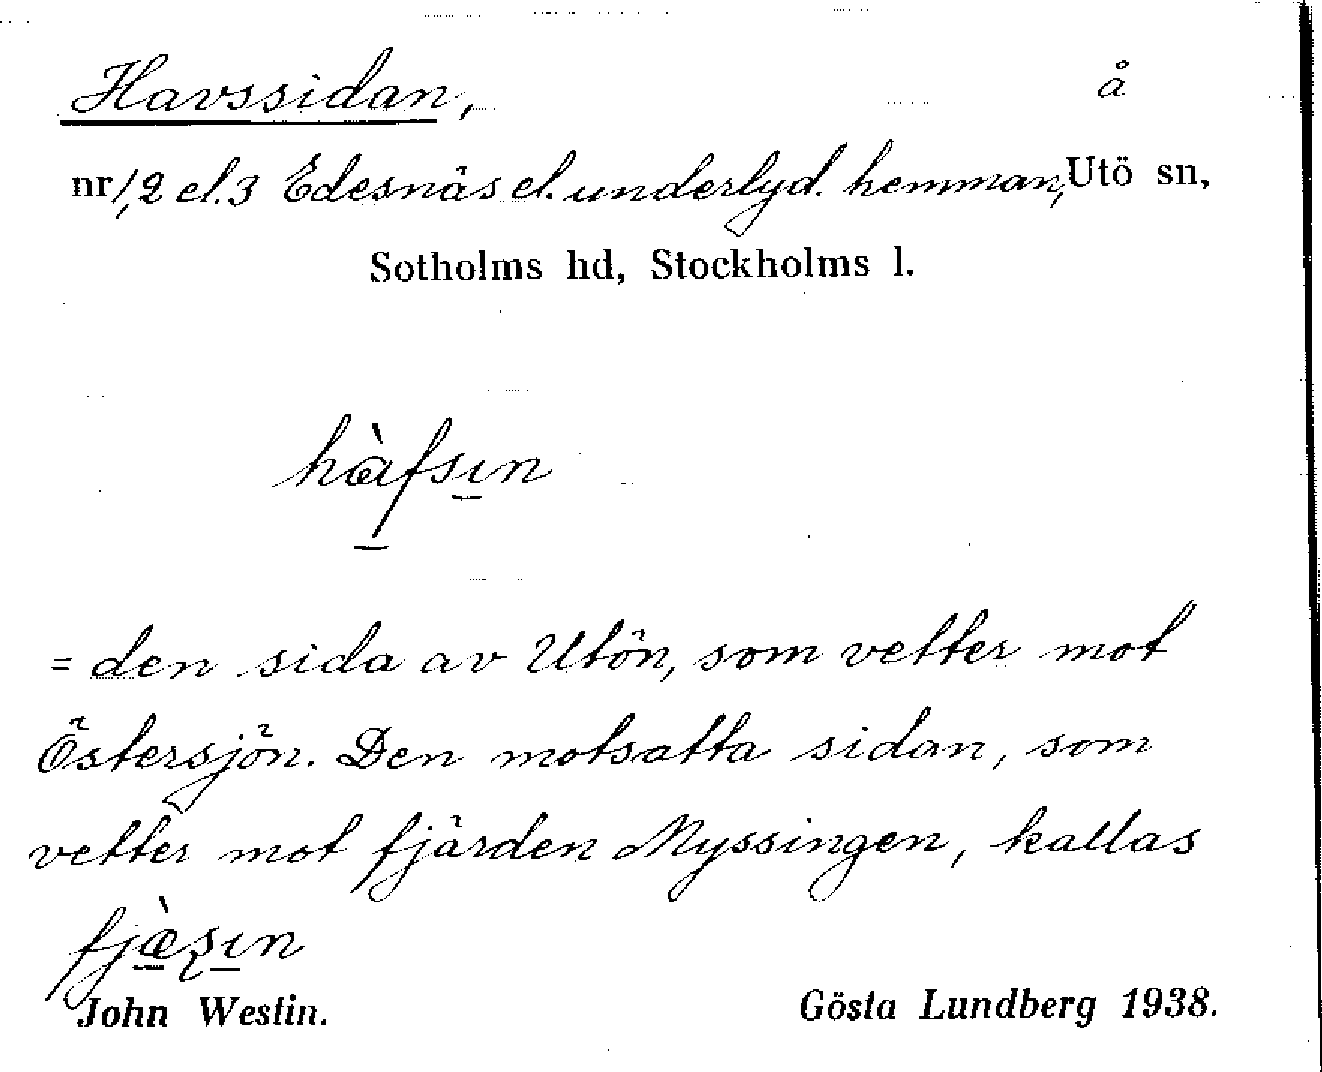 Havssidan, å
nr 1, 2 el. 3 Edesnäs el. underlyd. hemman, Utö sn,
Sotholms hd, Stockholms l.
hàfsın
= den sida av Utön, som vetter mot
Östersjön. Den motsatta sidan, som
vetter mot fjärden Myssingen, kallas
fjæ̀ʂın
John Westin. Gösta Lundberg 1938.